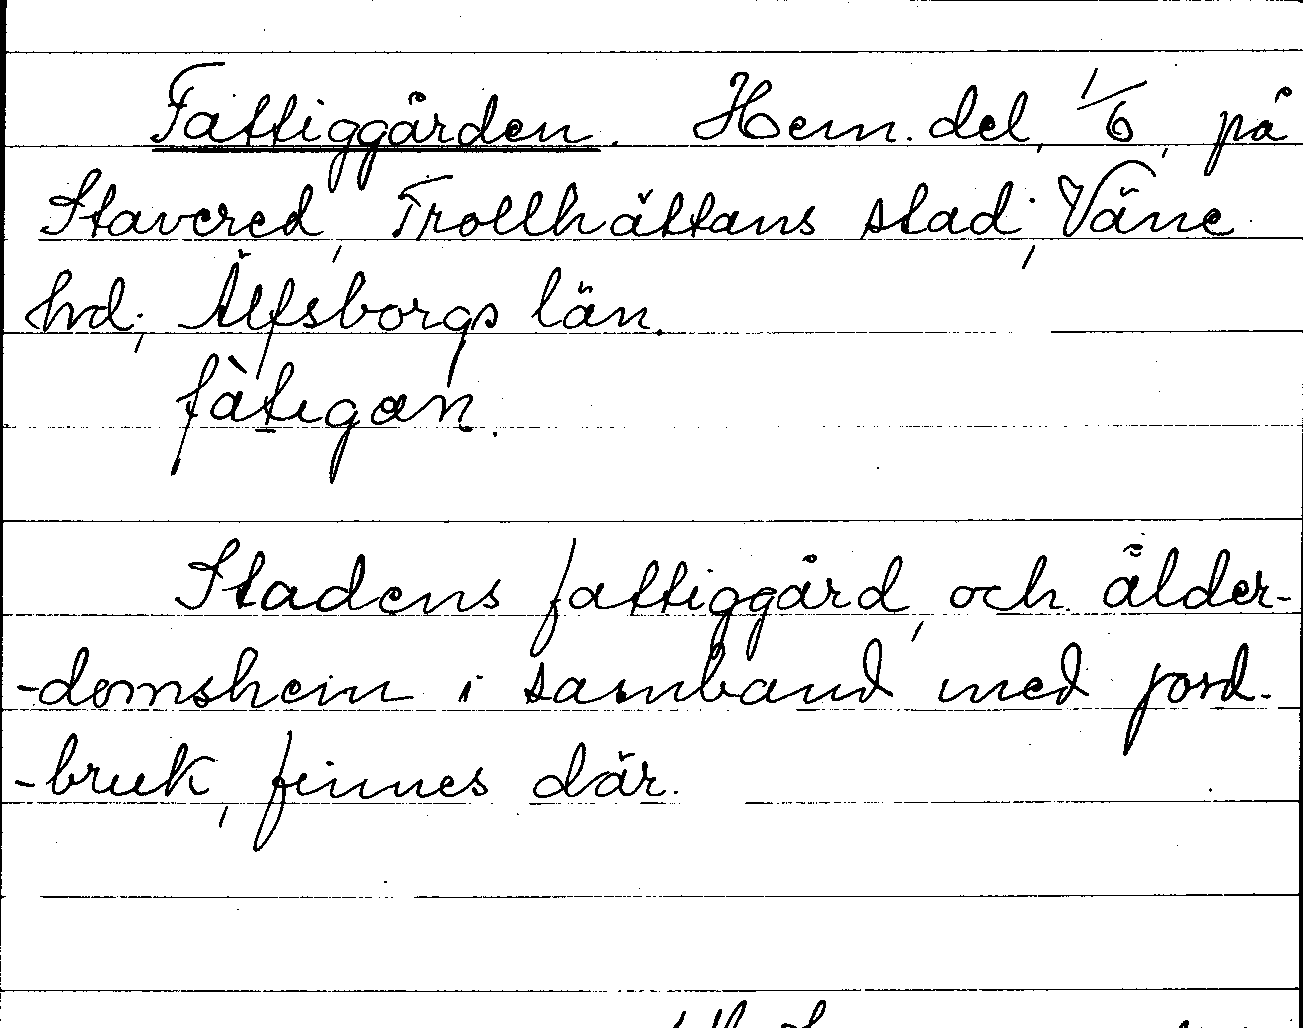 Fattiggården. Hem. del, 1/6, på
Stavered, Trollhättans stad; Väne
hd; Älfsborgs län.
fàtigan.
Stadens fattiggård, och ålder-
-domshem i samband med jord-
-bruk, finnes där.